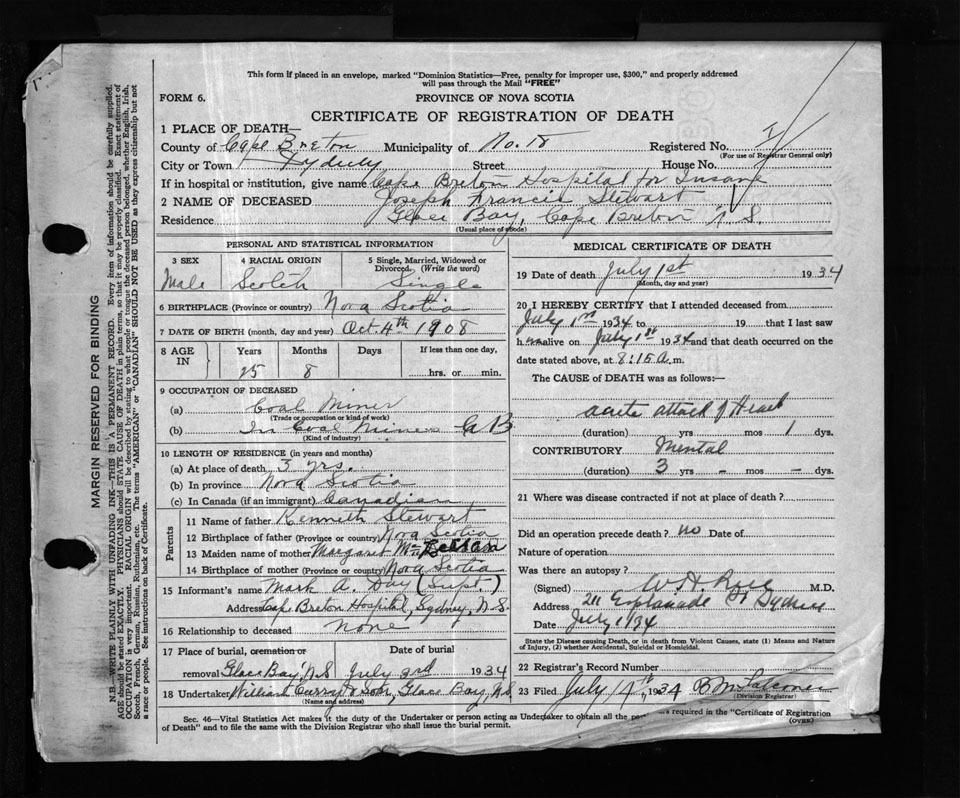 This form if placed in an envelope, marked "Dominion Statistics—Free, penalty for improper use, $300," and properly addressed
will pass through the Mail "FREE"
FORM 6.
PROVINCE OF NOVA SCOTIA
CERTIFICATE OF REGISTRATION OF DEATH
1 PLACE OF DEATH—
County of Cape Breton Municipality of No. 18 Registered No.
(For use of Registrar General only)
City or Town Sydney Street House No.
If in hospital or institution, give name Cape Breton Hospital for Insane
2 NAME OF DECEASED Joseph Francis Stewart
Residence Glace Bay, Cape Breton N S
(Usual place of abode)
PERSONAL AND STATISTICAL INFORMATION
3 SEX 4 RACIAL ORIGIN 5 Single, Married, Widowed or
Divorced (Write the word)
Male Scotch Single
6 BIRTHPLACE (Province or country) Nova Scotia
7 DATE OF BIRTH (month, day and year) Oct 4th 1908
8 AGE IN Years Months Days If less than one day,
25 8 hrs. or min.
9 OCCUPATION OF DECEASED
(a) Coal Miner
(Trade or occupation or kind of work)
(b) In Coal Mines G B
(Kind of industry)
10 LENGTH OF RESIDENCE (in years and months)
(a) At place of death 3 yrs.
(b) In province Nova Scotia
(c) In Canada (if an immigrant) Canadian
Parents
11 Name of father Kenneth Stewart
12 Birthplace of father (Province or country) Nova Scotia
13 Maiden name of mother Margaret
14 Birthplace of mother (Province or country) Nova Scotia
15 Informant's name Mark A. Day (Supt)
Address Cape Breton Hospital, Sydney, N.S.
16 Relationship to deceased None
17 Place of burial, cremation or Date of burial
removal Glace Bay, N.S July 3rd 1934
18 Undertaker William Curry & Son, Glace Bay, N.S.
(Name and address)
MEDICAL CERTIFICATE OF DEATH
19 Date of death July 1st 1934
(Month, day and year)
20 I HEREBY CERTIFY that I attended deceased from
July 1st 1934 to 19 that I last saw
h im alive on July 1st 1934 and that death occurred on the
date stated above, at 8:15 a.m.
The CAUSE OF DEATH was as follows:—
acute attack of Heart
(duration) yrs mos 1 dys.
CONTRIBUTORY Mental
(duration) 3 yrs – mos – dys.
21 Where was disease contracted if not at place of death?
Did an operation precede death? no Date of
Nature of operation
Was there an autopsy?
(Signed) M.D.
Address 211 Esplanade St Sydney
Date July 1/34
State the Disease causing Death, or in death from Violent Causes, state (1) Means and Nature
of Injury, (2) whether Accidental, Suicidal or Homicidal.
22 Registrar's Record Number
23 Filed July 14th, 1934
(Division Registrar)
Sec. 46—Vital Statistics Act makes it the duty of the Undertaker or person acting as Undertaker to obtain all the required in the "Certificate of Registration
of Death" and to file the same with the Division Registrar who shall issue the burial permit.
(OVER)
MARGIN RESERVED FOR BINDING
N.B.—WRITE PLAINLY WITH UNFADING INK—THIS IS A PERMANENT RECORD. Every item of information should be carefully supplied.
AGE should be stated EXACTLY. PHYSICIANS should STATE CAUSE OF DEATH in plain terms, so that it may be properly classified. Exact statement of
OCCUPATION is very important. RACIAL ORIGIN will be described by stating to what people or tongue the deceased person belonged, whether English, Irish,
Scotch, French, German, Russian, Ruthenian, etc. The terms "AMERICAN" or "CANADIAN" SHOULD NOT BE USED as they express citizenship but not
a race or people. See instructions on back of Certificate.